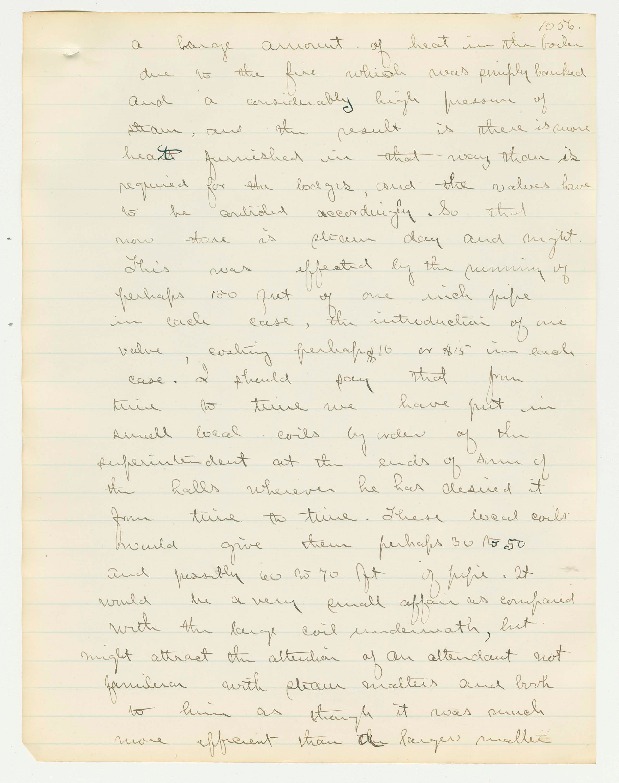 1056.
a large amount of heat in the boiler
due to the fire which was simply banked
and a considerably high pressure of
steam, and the result is there is more
heat furnished in that way than is
required for the lodges, and the valves have
to be controlled accordingly. So that
now there is steam day and night.
This was effected by the running of
perhaps 100 feet of one inch pipe
in each case, the introduction of one
valve, costing perhaps $10 or $15 in each
case. I should say that from
time to time we have put in
small local coils by order of the
superintendent at the ends of some of
the halls wherever he has desired it
from time to time. These local coils
would give them perhaps 30 to 50
and possibly 60 to 70 ft. of pipe. It
would be a very small affair as compared
with the large coil underneath, but
might attract the attention of an attendant not
familiar with steam matters and look
to him as though it was much
more efficient than the larger matter